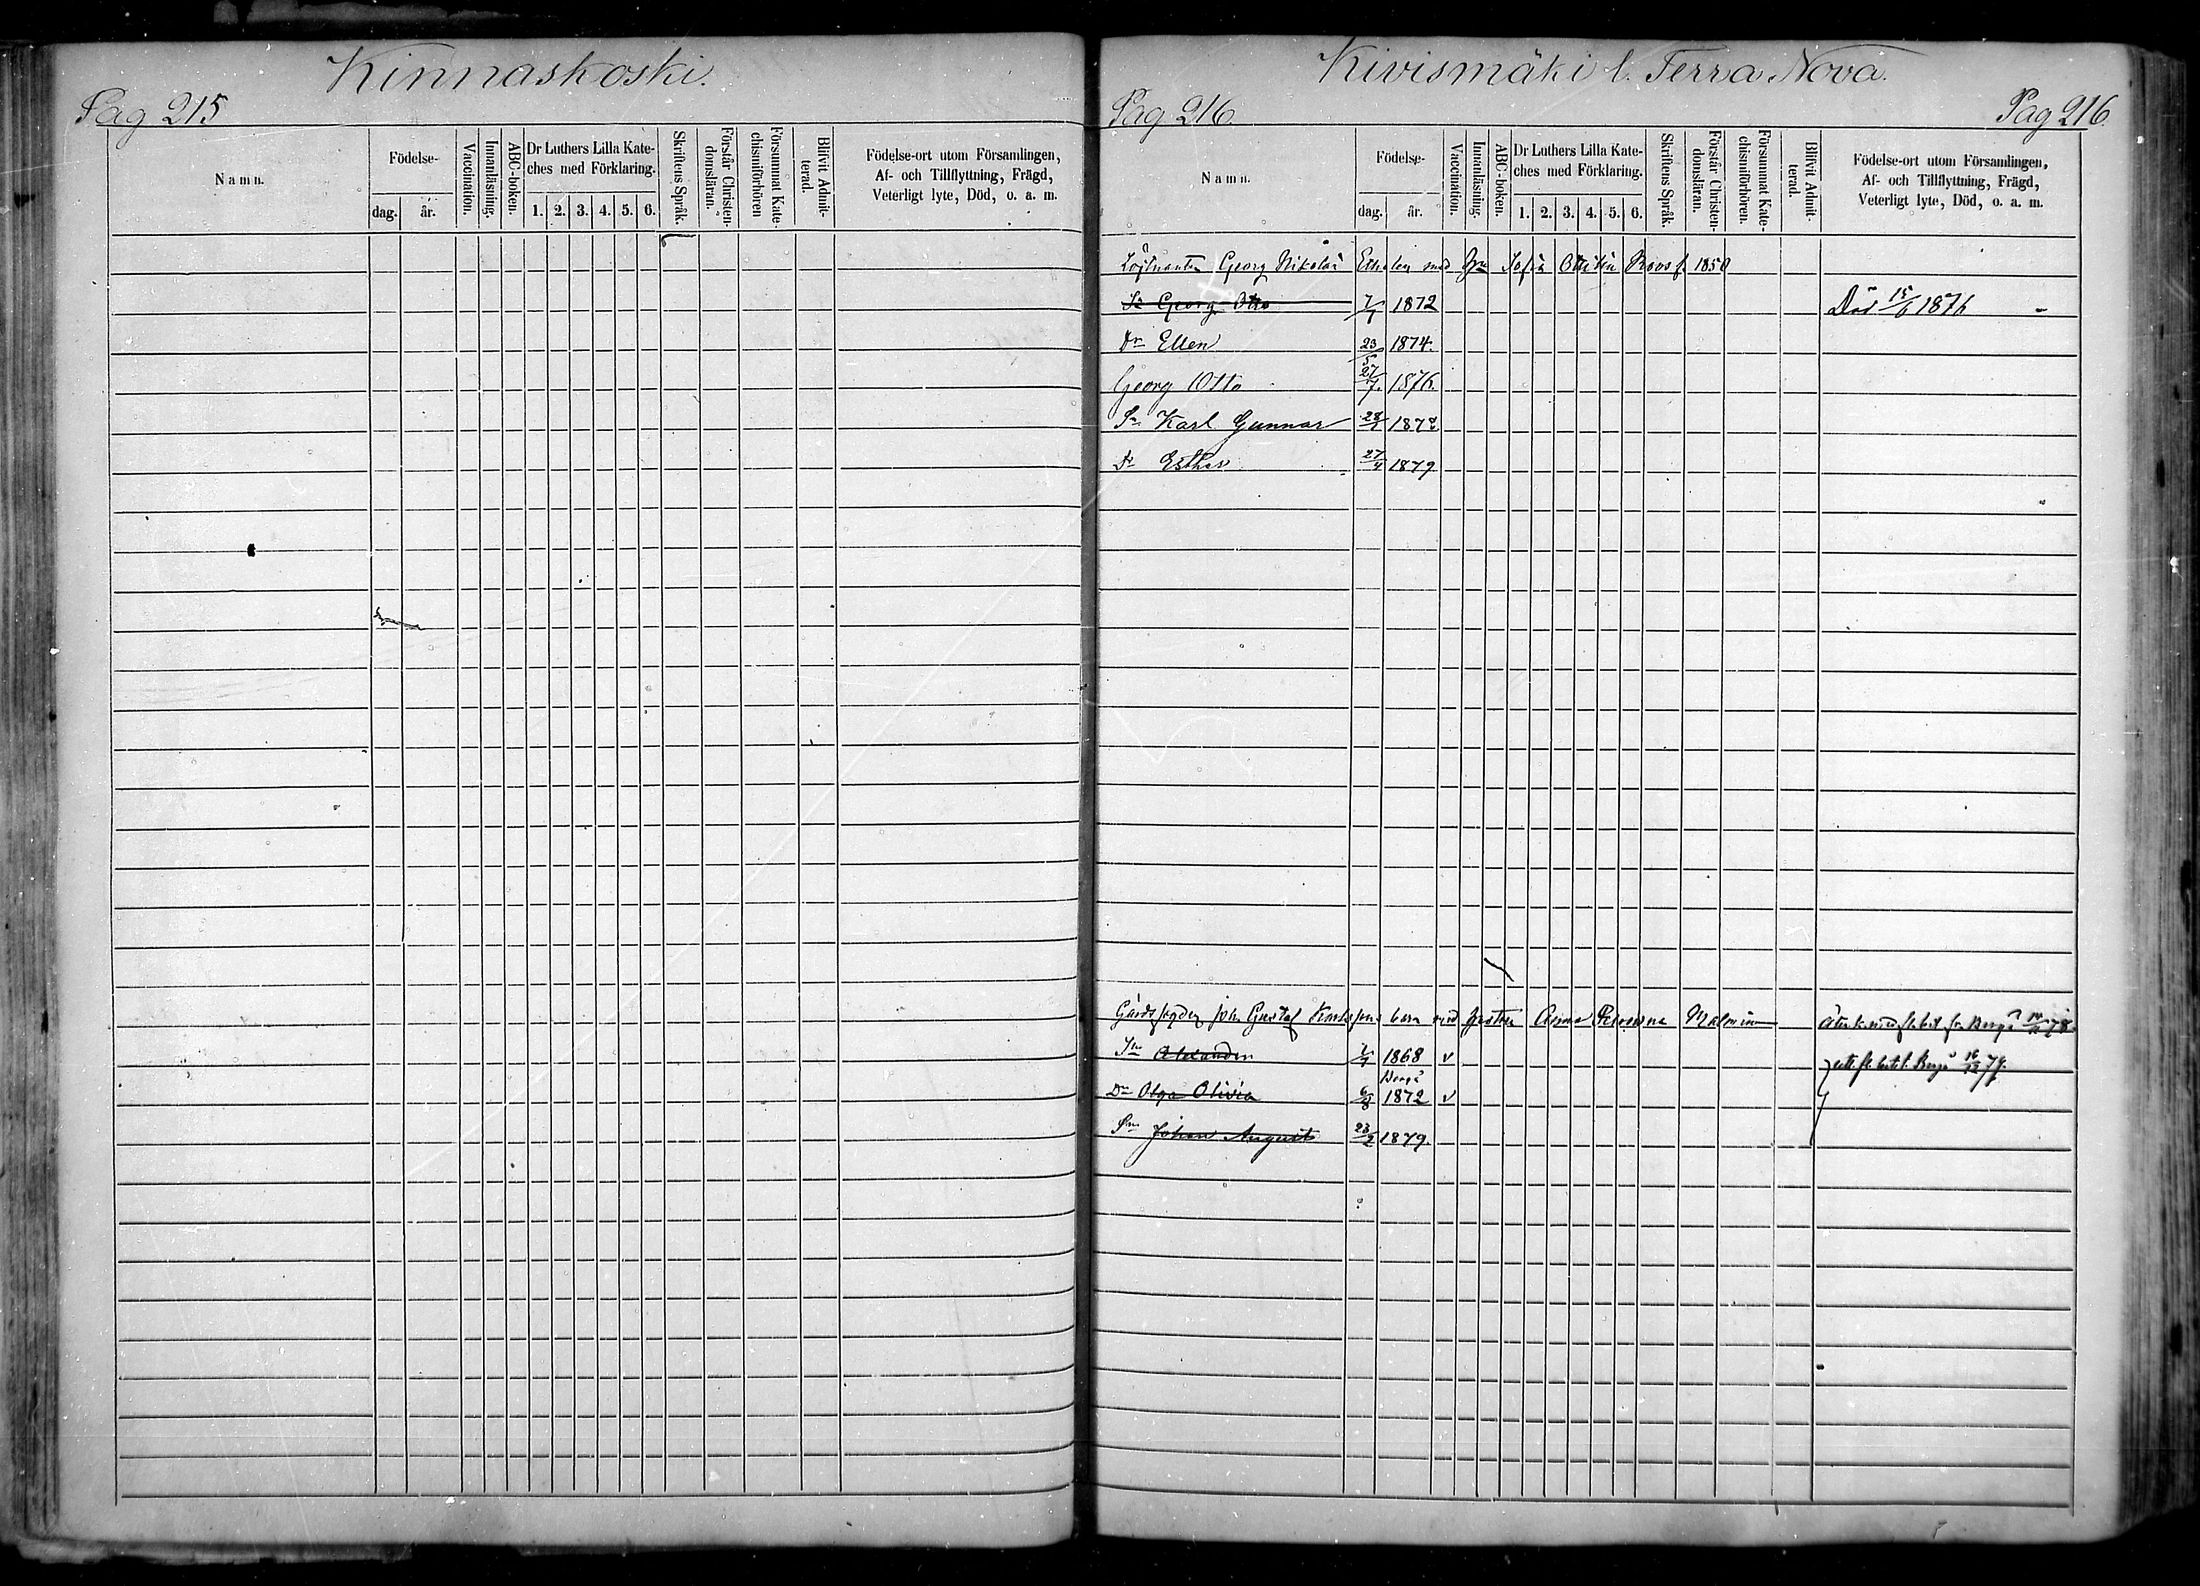 Kinnaskoski.
Pag 215
Namn.
Födelse-
dag.
år.
Vaccination.
Innanläsning.
ABC-boken.
Dr Luthers Lilla Kate-
ches med Förklaring.
1. 2. 3. 4. 5. 6.
Skriftens Språk.
Förstår Christen-
domsläran.
Försummat Kate-
chismiförhören
Blifvit Admit-
terad.
Födelse-ort utom Församlingen,
Af- och Tillflyttning, Frägd,
Veterligt lyte, Död, o. a. m.
Kivismäki l. Terra Nova.
Pag 216
Pag 216.
Namn.
Födelse-
dag.
år.
Vaccination.
Innanläsning.
ABC-boken.
Dr Luthers Lilla Kate-
ches med Förklaring.
1. 2. 3. 4. 5. 6.
Skriftens Språk.
Förstår Christen-
domsläran.
Försummat Kate-
chismiförhören.
Blifvit Admit-
terad.
Födelse-ort utom Församlingen,
Af- och Tillflyttning, Frägd,
Veterligt lyte, Död, o. a. m.
Löjtnanten Georg Nikolai Etholen med Fru Sofia Ottilia Roos f. 1850
Sn Georg Otto 1872 Död 15/6 1876
Dr Ellen 23/5 1874.
Georg Otto 27/7. 1876.
Sn Karl Gunnar 1878
Dr Esther 27/4 1879
Johan Gustaf Karlsson barn med hustru Anna Malmim
Sn Alexander 1868 v
Borgå
Dr Olga Olivia 6/8 1872 v
Sn Johan August 23/2 1879.